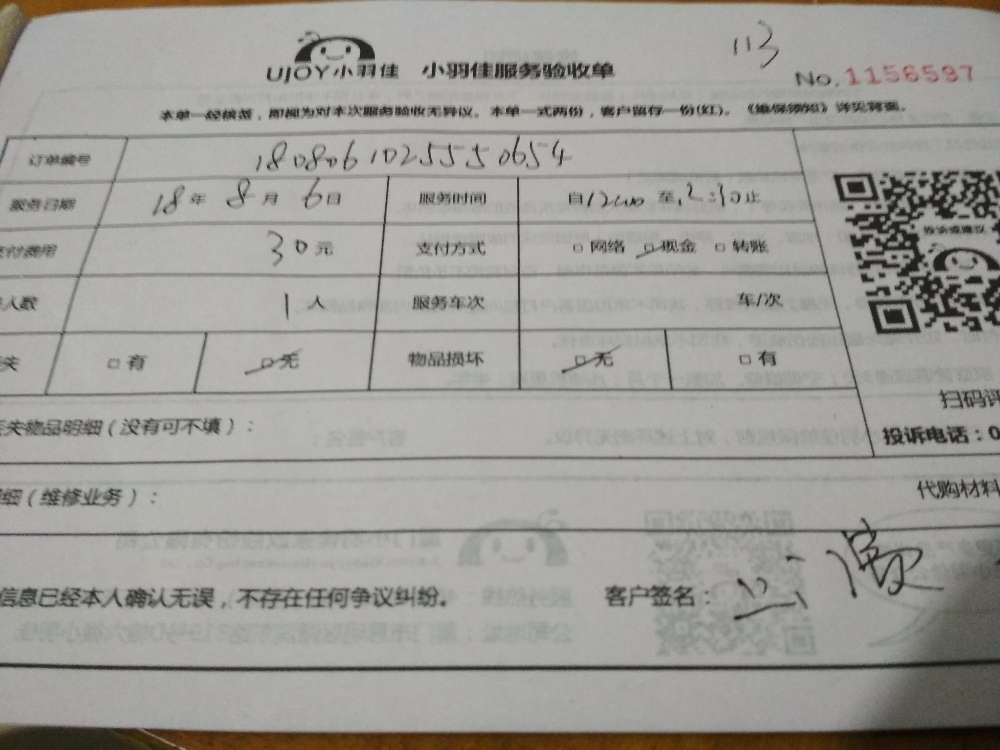 113
UJOY小羽佳 小羽佳服务验收单
No.1156597
本单一经核签，即视为对本次服务验收无异议。本单一式两份，客户留存一份(红)。《维保须知》详见背面。
订单编号 18080610255550654
服务日期 18年8月6日 服务时间 自1200至12:30止
支付费用 30元 支付方式 □网络 □现金 □转账
人数 1人 服务车次 车/次
失 □有 □无 物品损坏 □无 □有
失物品明细（没有可不填）：
扫码评
投诉电话：0
细（维修业务）：
代购材料
信息已经本人确认无误，不存在任何争议纠纷。 客户签名：